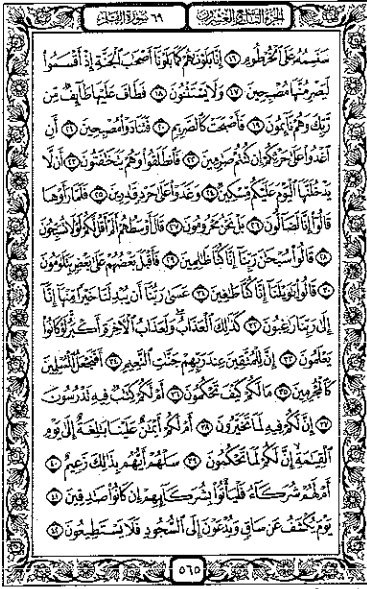 الجزء التاسع والعشرون
٦٩ سورة القلم
سَنَسِمُهُ عَلَى الْخُرْطُومِ ١٦ إِنَّا بَلَوْنَاهُمْ كَمَا بَلَوْنَا أَصْحَابَ الْجَنَّةِ إِذْ أَقْسَمُوا
لَيَصْرِمُنَّهَا مُصْبِحِينَ ١٧ وَلَا يَسْتَثْنُونَ ١٨ فَطَافَ عَلَيْهَا طَائِفٌ مِّن
رَّبِّكَ وَهُمْ نَائِمُونَ ١٩ فَأَصْبَحَتْ كَالصَّرِيمِ ٢٠ فَتَنَادَوْا مُصْبِحِينَ ٢١ أَنِ
اغْدُوا عَلَى حَرْثِكُمْ إِن كُنتُمْ صَارِمِينَ ٢٢ فَانطَلَقُوا وَهُمْ يَتَخَافَتُونَ ٢٣ أَن لَّا
يَدْخُلَنَّهَا الْيَوْمَ عَلَيْكُم مِّسْكِينٌ ٢٤ وَغَدَوْا عَلَى حَرْدٍ قَادِرِينَ ٢٥ فَلَمَّا رَأَوْهَا
قَالُوا إِنَّا لَضَالُّونَ ٢٦ بَلْ نَحْنُ مَحْرُومُونَ ٢٧ قَالَ أَوْسَطُهُمْ أَلَمْ أَقُل لَّكُمْ لَوْلَا تُسَبِّحُونَ
٢٨ قَالُوا سُبْحَانَ رَبِّنَا إِنَّا كُنَّا ظَالِمِينَ ٢٩ فَأَقْبَلَ بَعْضُهُمْ عَلَى بَعْضٍ يَتَلَاوَمُونَ
٣٠ قَالُوا يَا وَيْلَنَا إِنَّا كُنَّا طَاغِينَ ٣١ عَسَى رَبُّنَا أَن يُبْدِلَنَا خَيْرًا مِّنْهَا إِنَّا
إِلَى رَبِّنَا رَاغِبُونَ ٣٢ كَذَلِكَ الْعَذَابُ وَلَعَذَابُ الْآخِرَةِ أَكْبَرُ لَوْ كَانُوا
يَعْلَمُونَ ٣٣ إِنَّ لِلْمُتَّقِينَ عِندَ رَبِّهِمْ جَنَّاتِ النَّعِيمِ ٣٤ أَفَنَجْعَلُ الْمُسْلِمِينَ
كَالْمُجْرِمِينَ ٣٥ مَا لَكُمْ كَيْفَ تَحْكُمُونَ ٣٦ أَمْ لَكُمْ كِتَابٌ فِيهِ تَدْرُسُونَ
٣٧ إِنَّ لَكُمْ فِيهِ لَمَا تَخَيَّرُونَ ٣٨ أَمْ لَكُمْ أَيْمَانٌ عَلَيْنَا بَالِغَةٌ إِلَى يَوْمِ
الْقِيَامَةِ إِنَّ لَكُمْ لَمَا تَحْكُمُونَ ٣٩ سَلْهُمْ أَيُّهُم بِذَلِكَ زَعِيمٌ ٤٠
أَمْ لَهُمْ شُرَكَاءُ فَلْيَأْتُوا بِشُرَكَائِهِمْ إِن كَانُوا صَادِقِينَ ٤١
يَوْمَ يُكْشَفُ عَن سَاقٍ وَيُدْعَوْنَ إِلَى السُّجُودِ فَلَا يَسْتَطِيعُونَ ٤٢
٥٦٥